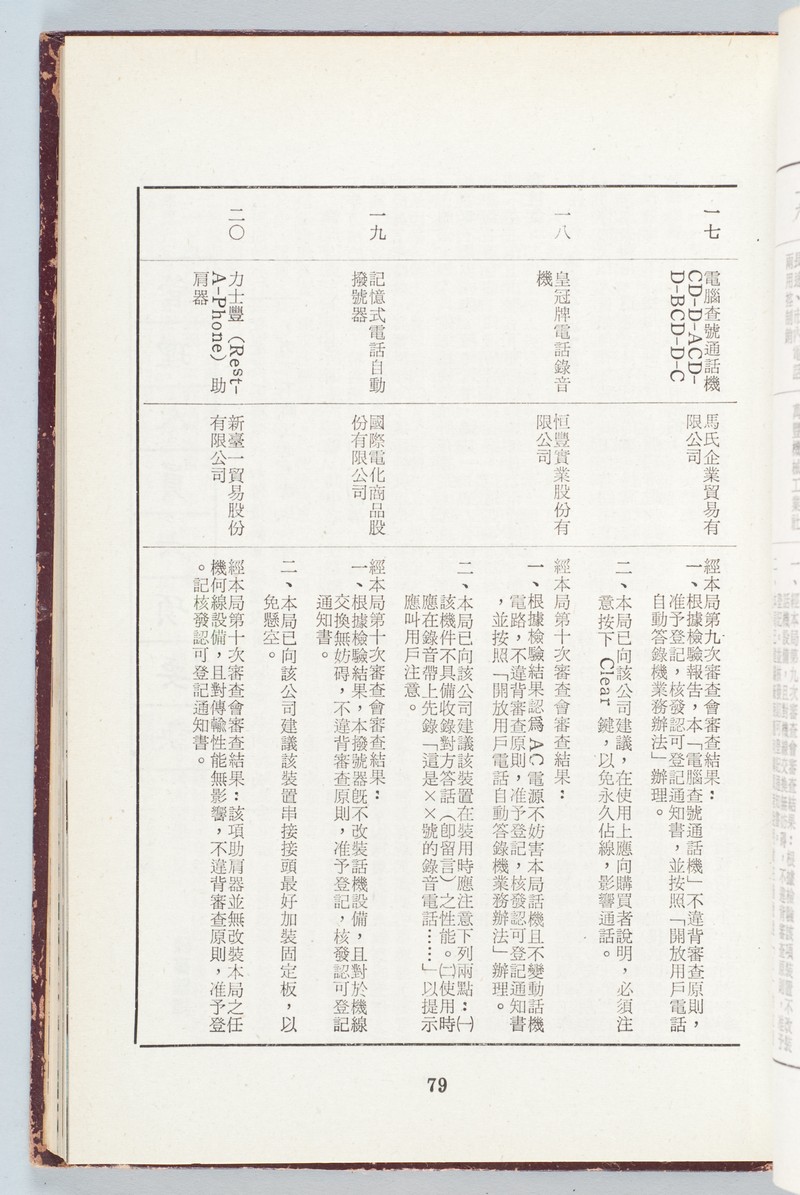 一七
電腦查號通話機
CD-D-ACD-
D-BCD-D-C
馬氏企業貿易有
限公司
經本局第九次審查會審查結果：
一、根據檢驗報告，本「電腦查號通話機」不違背審查原則，
准予登記，核發認可登記通知書，並按照「開放用戶電話
自動答錄機業務辦法」辦理。
二、本局已向該公司建議，在使用上應向購買者說明，必須注
意按下 Clear 鍵，以免永久佔線，影響通話。
一八
皇冠牌電話錄音
機
恒豐實業股份有
限公司
經本局第十次審查會審查結果：
一、根據檢驗結果認爲AC電源不妨害本局話機且不變動話機
電路，不違背審查原則，准予登記，核發認可登記通知書
，並按照「開放用戶電話自動答錄機業務辦法」辦理。
二、本局已向該公司建議該裝置在裝用時應注意下列兩點：㈠
該機件不具備收錄對方答話（卽留言）之性能。㈡使用時
應在錄音帶上先錄「這是××號的錄音電話……」以提示
應叫用戶注意。
一九
記憶式電話自動
撥號器
國際電化商品股
份有限公司
經本局第十次審查會審查結果：
一、根據檢驗結果，本撥號器旣不改裝話機設備，且對於機線
交換無妨碍，不違背審查原則，准予登記，核發認可登記
通知書。
二、本局已向該公司建議該裝置串接接頭最好加裝固定板，以
免懸空。
二〇
力士豐（Rest-
A-Phone）助
肩器
新臺一貿易股份
有限公司
經本局第十次審查會審查結果：該項助肩器並無改裝本局之任
機何線設備，且對傳輸性能無影響，不違背審查原則，准予登
。記核發認可登記通知書。
79